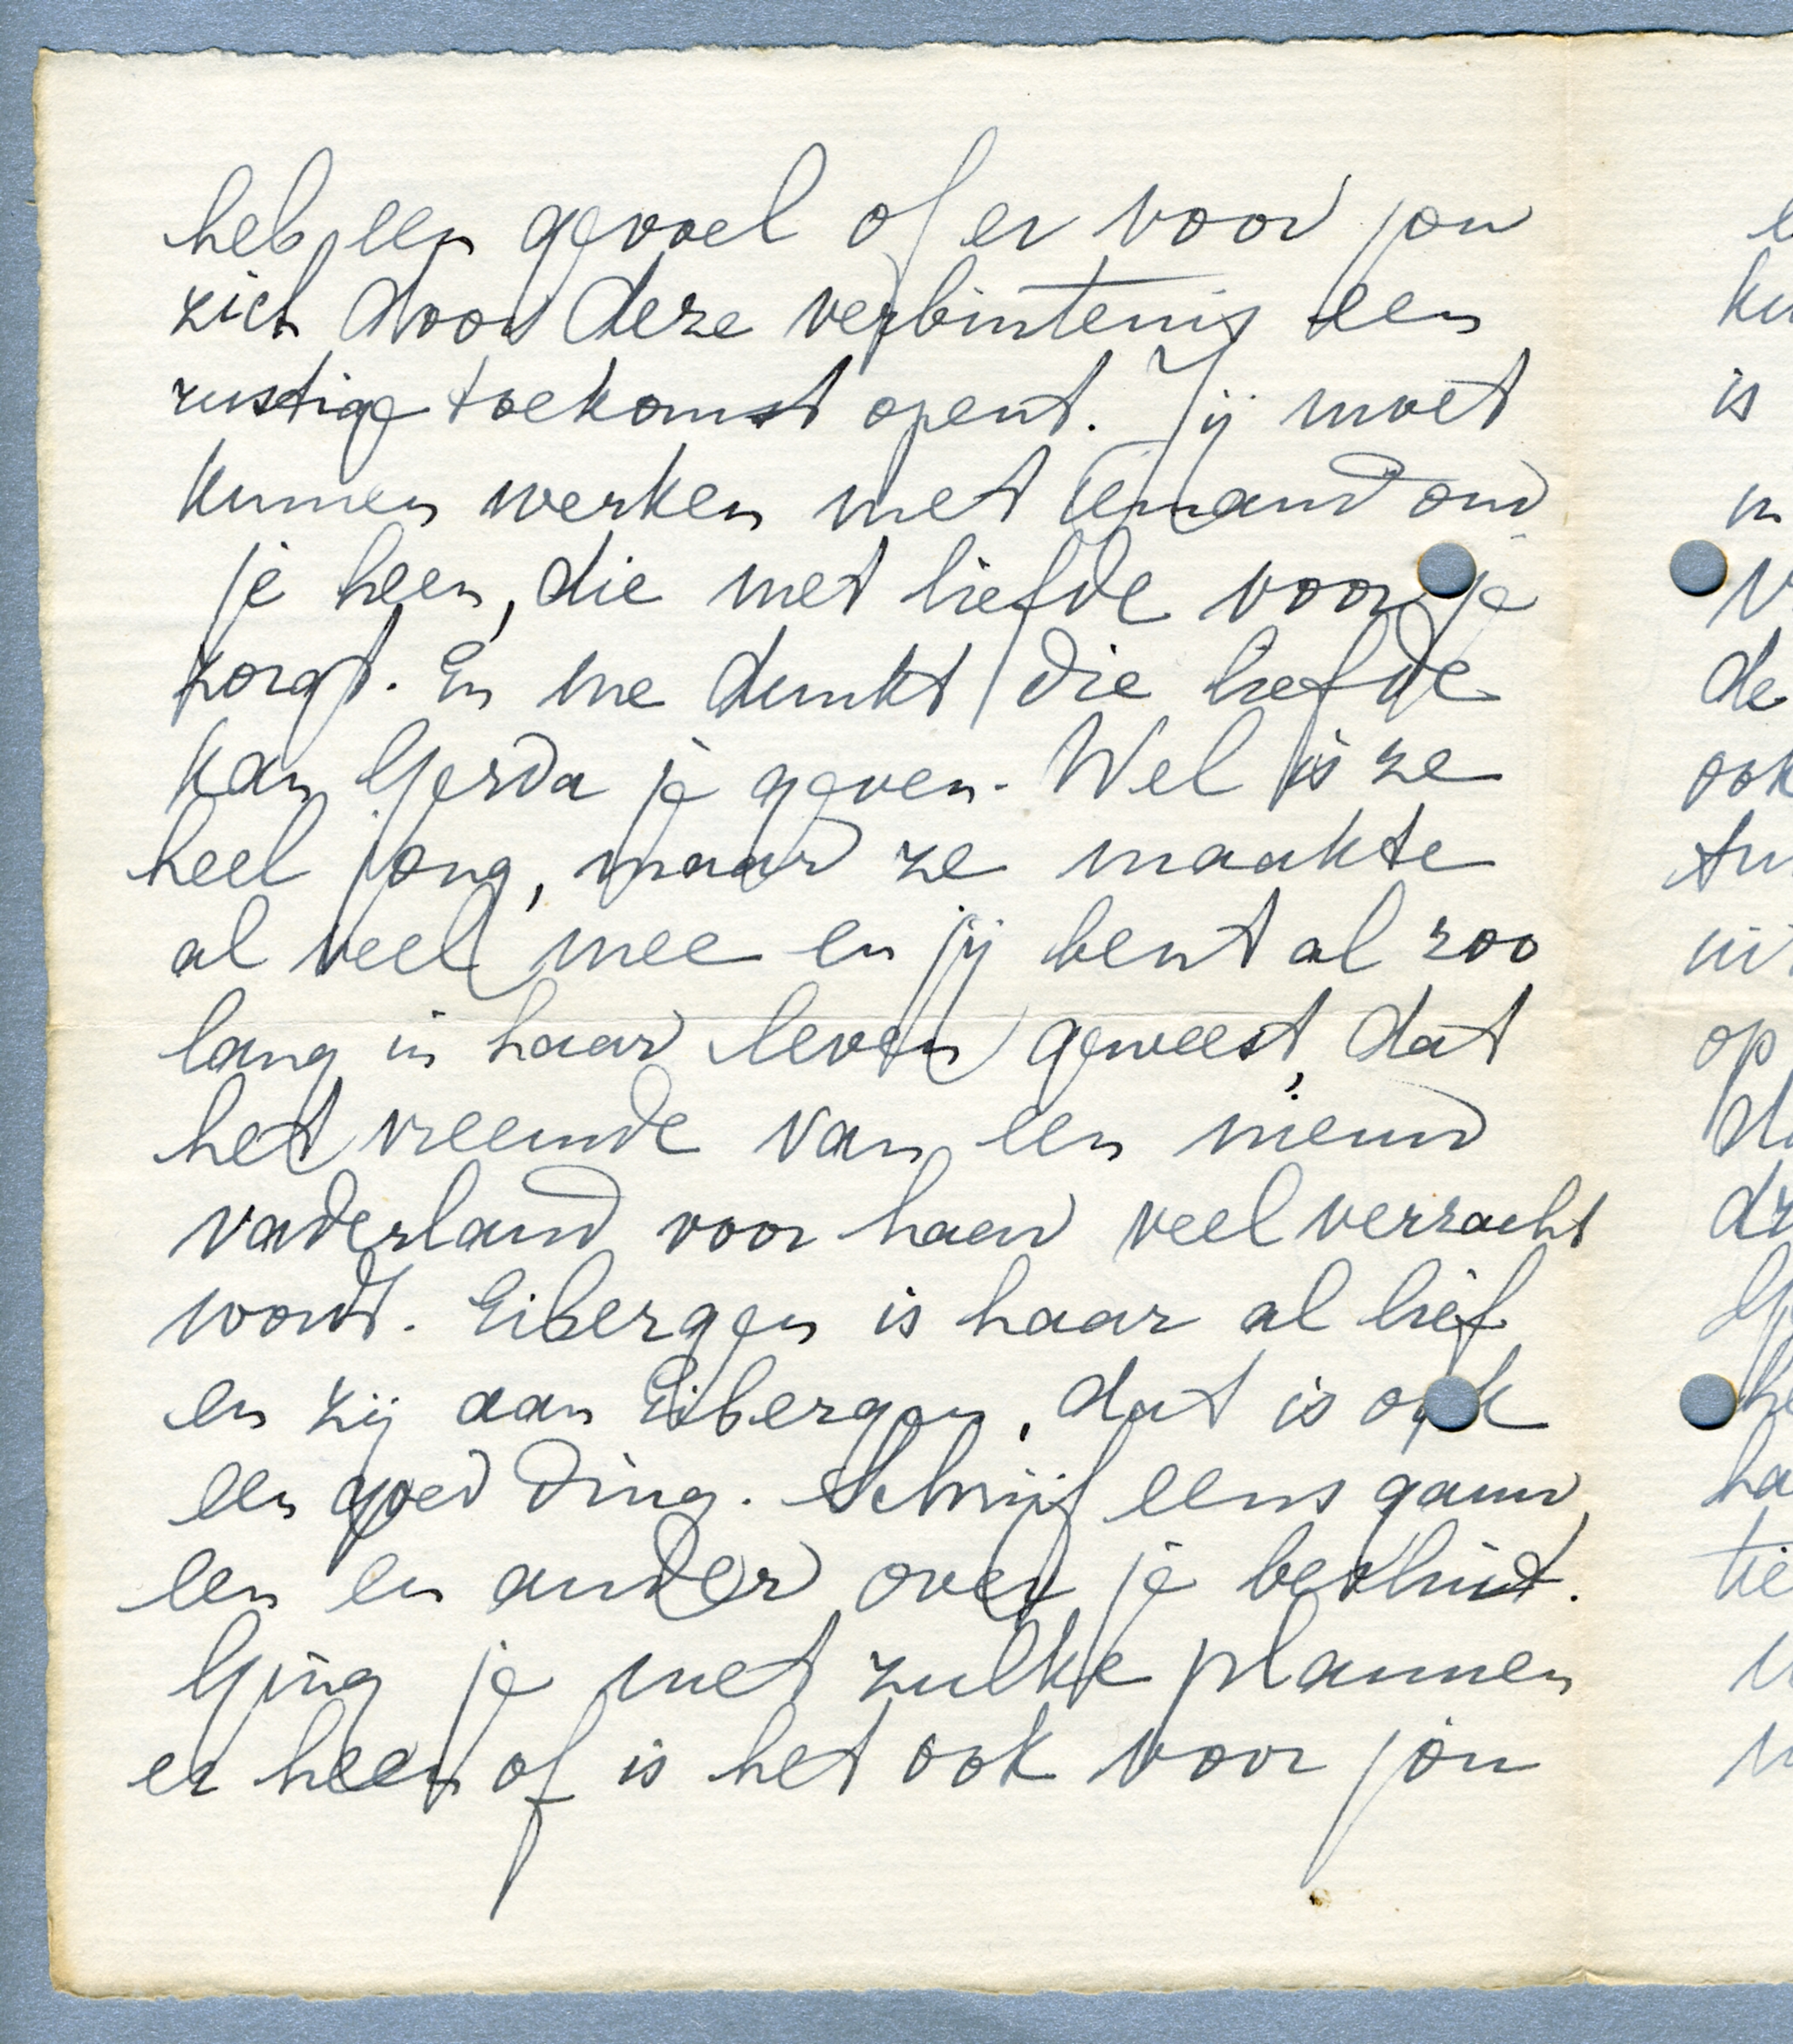 heb een gevoel of er voor jou
zich door deze verbintenis een
rustige toekomst opent. Jij moet
kunnen werken met iemand om
je heen, die met liefde voor je
zorgt. En me dunkt die liefde
kan Gerda je geven. Wel is ze
heel jong, maar ze maakte
al veel mee en jij bent al zoo
lang in haar leven geweest, dat
het vreemde van een nieuw
vaderland voor haar veel verzacht
wordt. Eibergen is haar al lief
en zij aan Eibergen, dat is ook
een goed ding. Schrijf eens gauw
een en ander over je besluit.
Ging je met zulke plannen
er heen of is het ook voor jou
is
de
ook
op